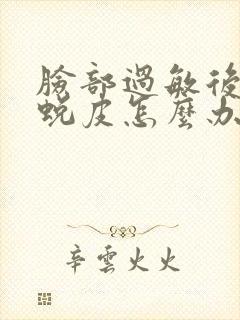 臉部過敏後
蛻皮怎麼办
辛雲火火